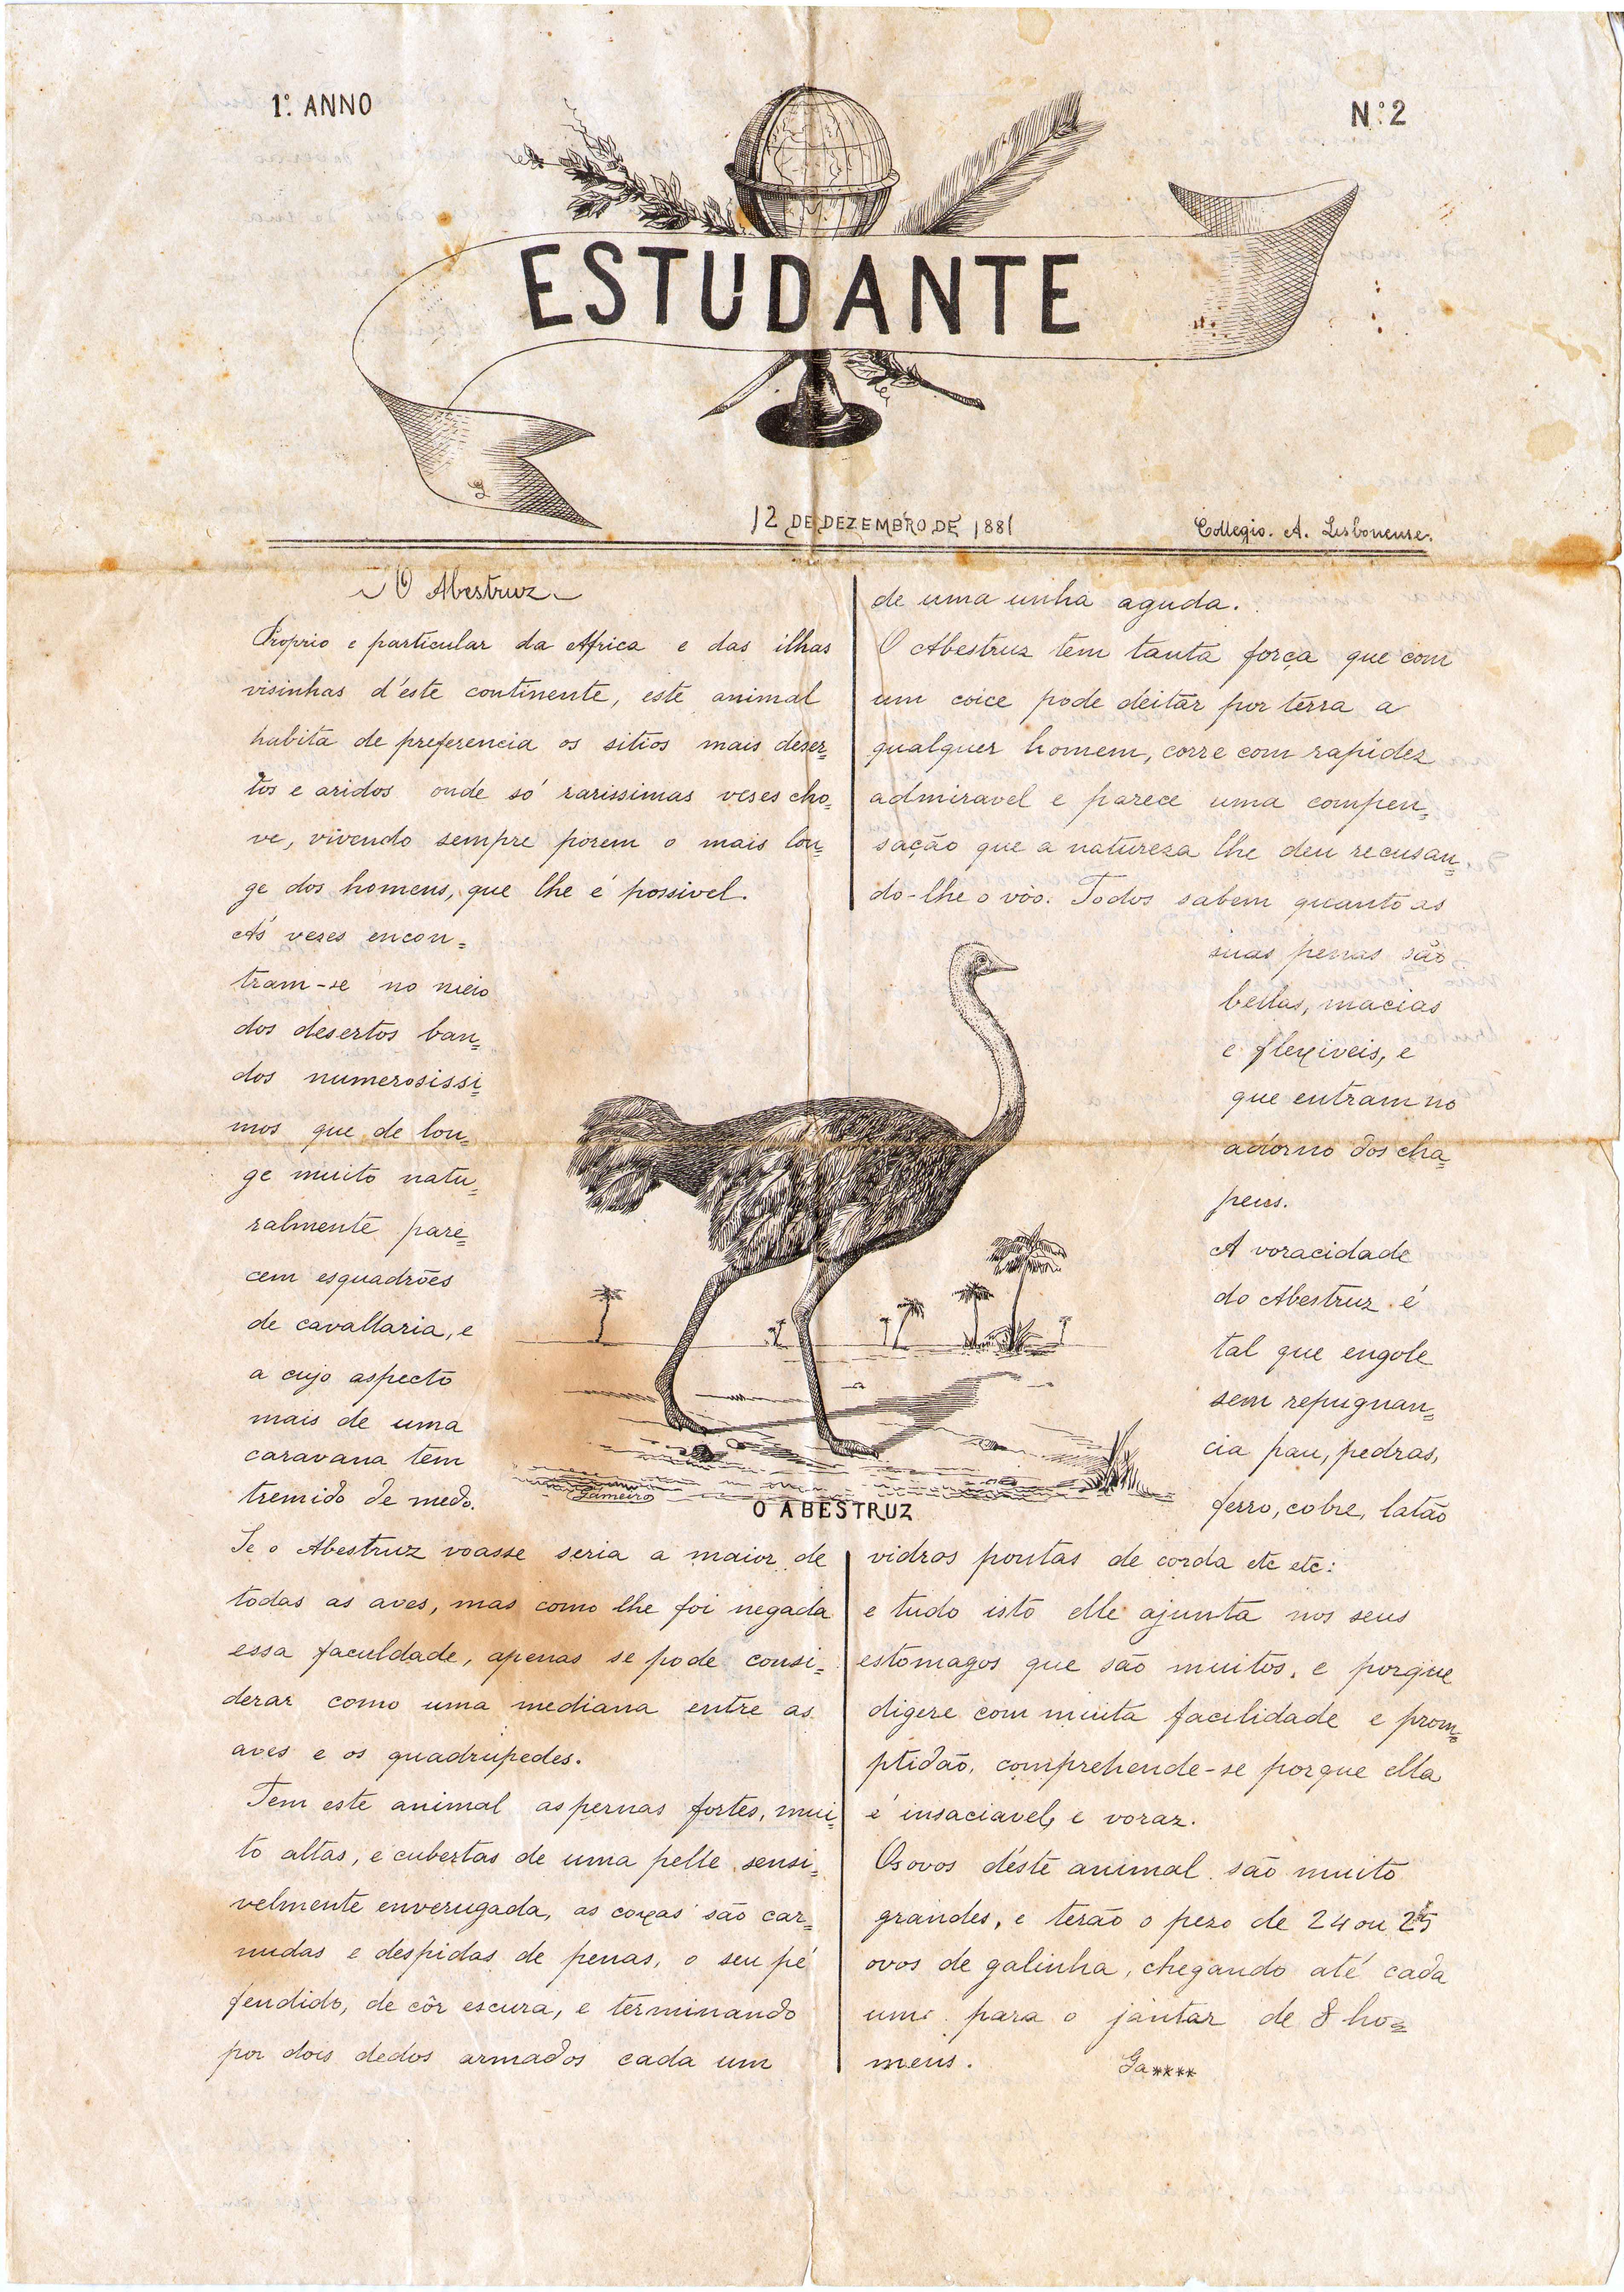 1º ANNO
Nº 2
ESTUDANTE
12 DE DEZEMBRO DE 1881
Collegio. A. Lisbonense.
O Abestruz
Proprio e particular da Africa e das ilhas
visinhas d'éste continente, este animal
habita de preferencia os sitios mais deser=
tos e aridos onde só rarissimas veses cho=
ve, vivendo sempre porem o mais lon=
ge dos homens, que lhe é possivel.
Ás vezes encon=
tram-se no meio
dos desertos ban=
dos numerosissi=
mos que de lon=
ge muito natu=
ralmente pare=
cem esquadrões
de cavallaria, e
a cujo aspecto
mais de uma
caravana tem
tremido de medo.
Se o Abestruz voasse seria a maior de
todas as aves, mas como lhe foi negada
essa faculdade, apenas se pode consi=
derar como uma mediana entre as
aves e os quadrupedes.
Tem este animal as pernas fortes, mui=
to altas, e cubertas de uma pelle sensi=
velmente enverugada, as coxas são car=
nudas e despidas de penas, o seu pé
fendido, de côr escura, e terminando
por dois dedos armados cada um
de uma unha aguda.
O Abestruz tem tanta força que com
um coice pode deitar por terra a
qualquer homem, corre com rapidez
admiravel e parece uma compen=
sação que a natureza lhe deu recusan=
do-lhe o vôo. Todos sabem quanto as
suas penas são
bellas, macias
e flexiveis, e
que entram no
adorno dos cha=
peus.
A voracidade
do Abestruz é
tal que engole
sem repugnan=
cia pau, pedras,
ferro, cobre, latão
vidros pontas de corda etc etc:
e tudo isto elle ajunta nos seus
estomagos que são muitos, e porque
digere com muita facilidade e prom=
ptidão, comprehende-se porque ella
é insaciavel, e voraz.
Os ovos d'éste animal são muito
grandes, e terão o pezo de 24 ou 25
ovos de galinha, chegando até cada
um para o jantar de 8 ho=
mens.
Ga****
Gameiro
O ABESTRUZ